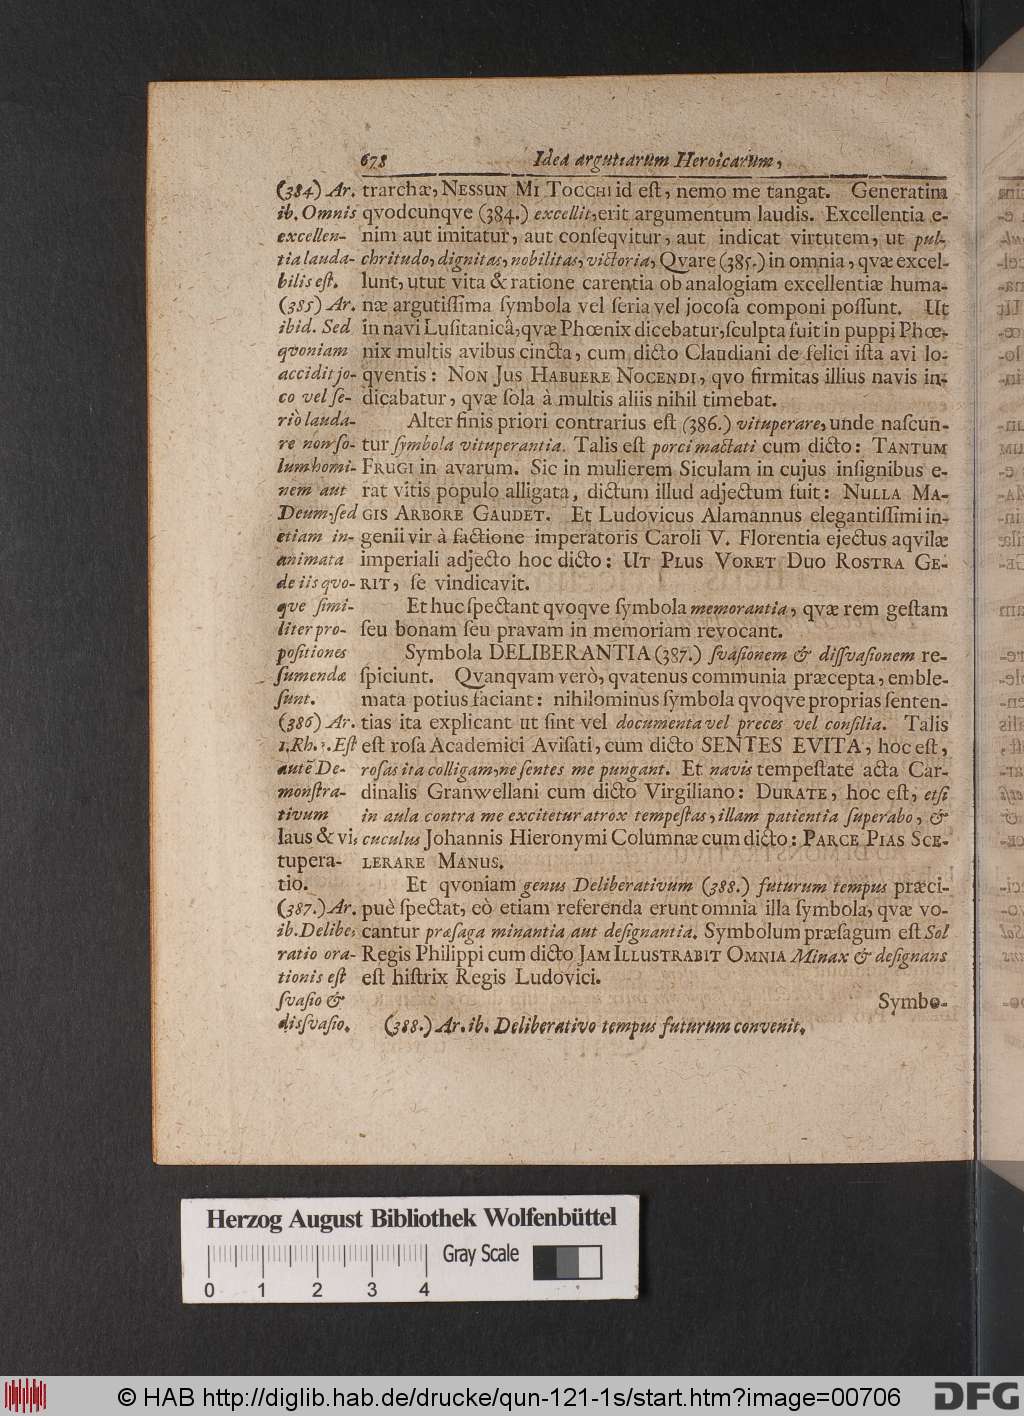 678 Idea argutiarum Heroicarum,
trarchæ, NESSUN MI TOCCHI id eſt, nemo me tangat. Generatim
qvodcunqve (384.) excellit, erit argumentum laudis. Excellentia e-
nim aut imitatur, aut conſeqvitur, aut indicat virtutem, ut pul-
chritudo, dignitas, nobilitas, victoria, Qvare (385.) in omnia, qvæ excel-
lunt, utut vita & ratione carentia ob analogiam excellentiæ huma-
næ argutiſſima ſymbola vel ſeria vel jocoſa componi poſſunt. Ut
in navi Luſitanicâ, qvæ Phœnix dicebatur, ſculpta fuit in puppi Phœ-
nix multis avibus cincta, cum dicto Claudiani de felici iſta avi lo-
qventis: NON JUS HABUERE NOCENDI, qvo firmitas illius navis in-
dicabatur, qvæ ſola à multis aliis nihil timebat.
Alter finis priori contrarius eſt (386.) vituperare, unde naſcun-
tur ſymbola vituperantia. Talis eſt porci mactati cum dicto: TANTUM
FRUGI in avarum. Sic in mulierem Siculam in cujus inſignibus e-
rat vitis populo alligata, dictum illud adjectum fuit: NULLA MA-
GIS ARBORE GAUDET. Et Ludovicus Alamannus elegantiſſimi in-
genii vir à factione imperatoris Caroli V. Florentia ejectus aqvilæ
imperiali adjecto hoc dicto: UT PLUS VORET DUO ROSTRA GE-
RIT, ſe vindicavit.
Et huc ſpectant qvoqve ſymbola memorantia, qvæ rem geſtam
ſeu bonam ſeu pravam in memoriam revocant.
Symbola DELIBERANTIA (387.) ſvaſionem & diſſvaſionem re-
ſpiciunt. Qvanqvam verò, qvatenus communia præcepta, emble-
mata potius faciant: nihilominus ſymbola qvoqve proprias ſenten-
tias ita explicant ut ſint vel documenta vel preces vel conſilia. Talis
eſt roſa Academici Aviſati, cum dicto SENTES EVITA, hoc eſt,
roſas ita colligam, ne ſentes me pungant. Et navis tempeſtate acta Car-
dinalis Granwellani cum dicto Virgiliano: DURATE, hoc eſt, etſi
in aula contra me excitetur atrox tempeſtas, illam patientia ſuperabo, &
cuculus Johannis Hieronymi Columnæ cum dicto: PARCE PIAS SCE-
LERARE MANUS.
Et qvoniam genus Deliberativum (388.) futurum tempus præci-
puè ſpectat, eò etiam referenda erunt omnia illa ſymbola, qvæ vo-
cantur præſaga minantia aut deſignantia. Symbolum præſagum eſt Sol
Regis Philippi cum dicto JAM ILLUSTRABIT OMNIA Minax & deſignans
eſt hiſtrix Regis Ludovici.
Symbo-
(384) Ar.
ib. Omnis
excellen-
tia lauda-
bilis eſt.
(385) Ar.
ibid. Sed
qvoniam
accidit jo-
co vel ſe-
riò lauda-
re non ſo-
lum homi-
nem aut
Deum, ſed
etiam in-
animata
de iis qvo-
qve ſimi-
liter pro-
poſitiones
ſumendæ
ſunt.
(386) Ar.
1. Rh. 3. Eſt
autẽ De-
monſtra-
tivum
laus & vi-
tupera-
tio.
(387.) Ar.
ib. Delibe-
ratio ora-
tionis eſt
ſvaſio &
disſvaſio.
(388.) Ar. ib. Deliberativo tempus futurum convenit.
Herzog August Bibliothek Wolfenbüttel
Gray Scale
0 1 2 3 4
© HAB http://diglib.hab.de/drucke/qun-121-1s/start.htm?image=00706
DFG